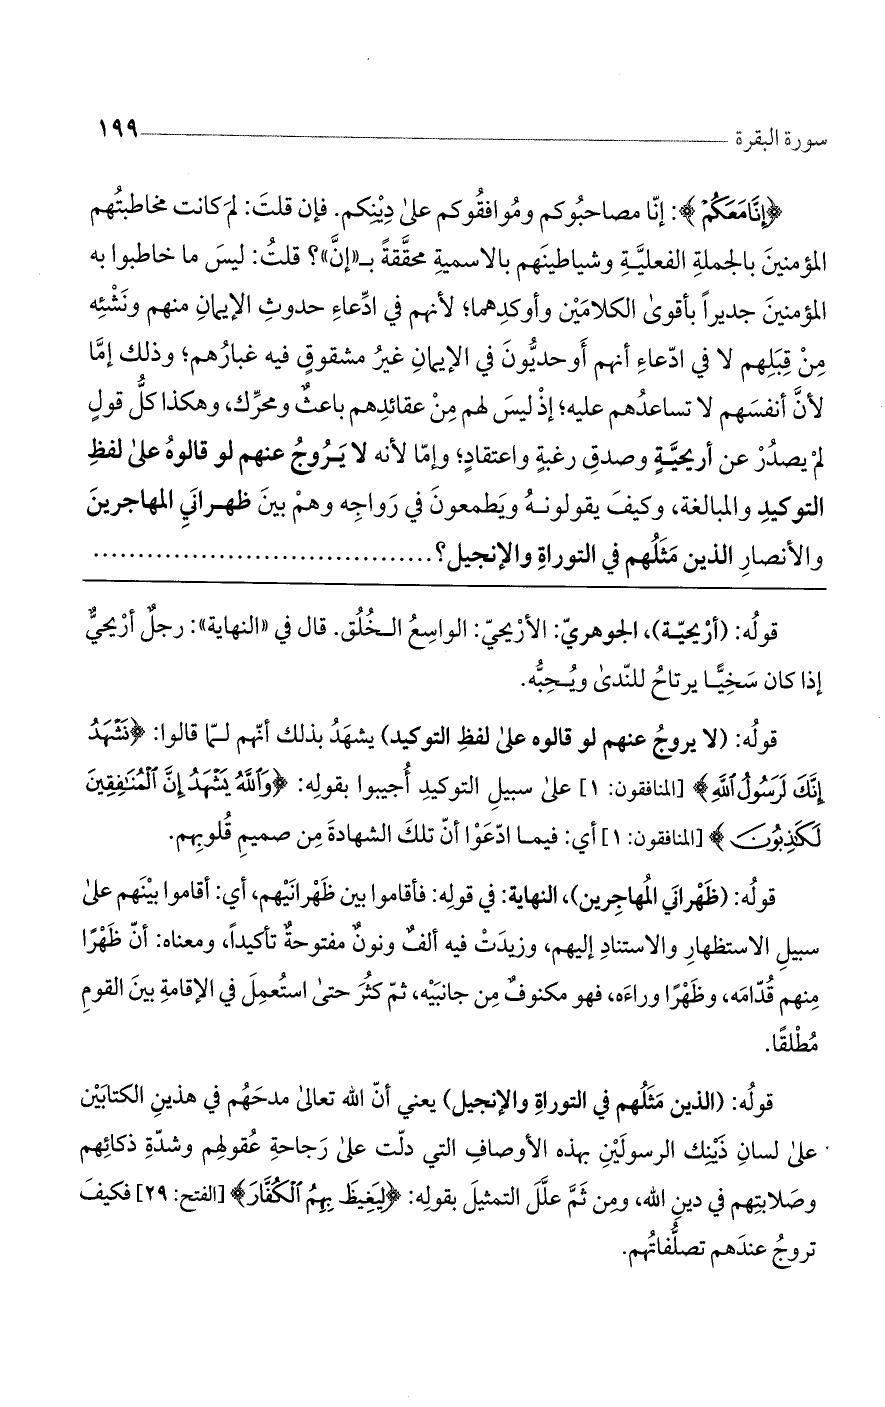 سورة البقرة ١٩٩
﴿إِنَّا مَعَكُمْ﴾: إنّا مصاحبُوكم ومُوافقُوكم علىٰ دِيْنِكم. فإن قلتَ: لمَ كانت مخاطبتُهم
المؤمنينَ بالجملةِ الفعليَّةِ وشياطينَهم بالاسميةِ محقَّقةً بـ«إنَّ»؟ قلتُ: ليسَ ما خاطبوا به
المؤمنينَ جديراً بأقوىٰ الكلامَيْن وأوكدِهما؛ لأنهم في ادِّعاءِ حدوثِ الإيمانِ منهم ونَشْئِه
مِنْ قِبَلِهم لا في ادّعاءِ أنهم أَوحديُّونَ في الإيمانِ غيرُ مشقوقٍ فيه غبارُهم؛ وذلك إمَّا
لأنَّ أنفسَهم لا تساعدُهم عليه؛ إذْ ليسَ لهم مِنْ عقائدِهم باعثٌ ومحرِّك، وهكذا كلُّ قولٍ
لمْ يصدُرْ عن أريحيَّةٍ وصدقِ رغبةٍ واعتقادٍ؛ وإمّا لأنه لا يَرُوجُ عنهم لو قالوهُ علىٰ لفظِ
التوكيدِ والمبالغة، وكيفَ يقولونهُ ويَطمعونَ في رَواجِه وهمْ بينَ ظهرانَيِ المهاجرينَ
والأنصارِ الذين مَثَلُهم في التوراةِ والإنجيل؟......................................
قولُه: (أرْيحيّة)، الجوهريّ: الأرْيحيّ: الواسِعُ الخُلُق. قال في «النهاية»: رجلٌ أرْيحيٌّ
إذا كان سَخِيًّا يرتاحُ للنّدىٰ ويُحِبُّه.
قولُه: (لا يروجُ عنهم لو قالوه علىٰ لفظِ التوكيد) يشهَدُ بذلك أنّهم لمّا قالوا: ﴿نَشْهَدُ
إِنَّكَ لَرَسُولُ ٱللَّهِ﴾ [المنافقون: ١] علىٰ سبيلِ التوكيدِ أُجيبوا بقولِه: ﴿وَٱللَّهُ يَشْهَدُ إِنَّ ٱلْمُنَٰفِقِينَ
لَكَٰذِبُونَ﴾ [المنافقون: ١] أي: فيما ادّعَوْا أنّ تلكَ الشهادةَ مِن صميمِ قُلوبِهم.
قولُه: (ظَهْرانَي المُهاجِرين)، النهاية: في قولِه: فأقاموا بين ظَهْرانَيْهم، أي: أقاموا بيْنَهم علىٰ
سبيلِ الاستظهارِ والاستنادِ إليهم، وزيدَتْ فيه ألفٌ ونونٌ مفتوحةٌ تأكيداً، ومعناه: أنّ ظَهْرًا
مِنهم قُدّامَه، وظَهْرًا وراءَه، فهو مكنوفٌ مِن جانبَيْه، ثمّ كثُرَ حتىٰ استُعمِلَ في الإقامةِ بينَ القومِ
مُطْلقًا.
قولُه: (الذين مَثَلُهم في التوراةِ والإنجيل) يعني أنّ الله تعالىٰ مدحَهُم في هذينِ الكتابَيْن
علىٰ لسانِ ذَيْنِك الرسولَيْنِ بهذه الأوصافِ التي دلّت علىٰ رَجاحةِ عُقولِهم وشدّةِ ذكائِهم
وصَلابتِهم في دينِ الله، ومِن ثَمَّ علّلَ التمثيلَ بقولِه: ﴿لِيَغِيظَ بِهِمُ ٱلْكُفَّارَ﴾ [الفتح: ٢٩] فكيفَ
تروجُ عندَهم تصلُّفاتُهم.